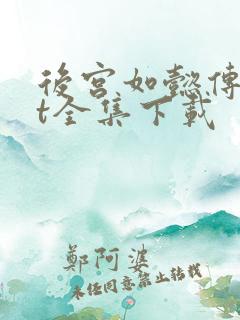 後宮如懿傳
t全集下載
鄭阿婆
未经同意禁止转载